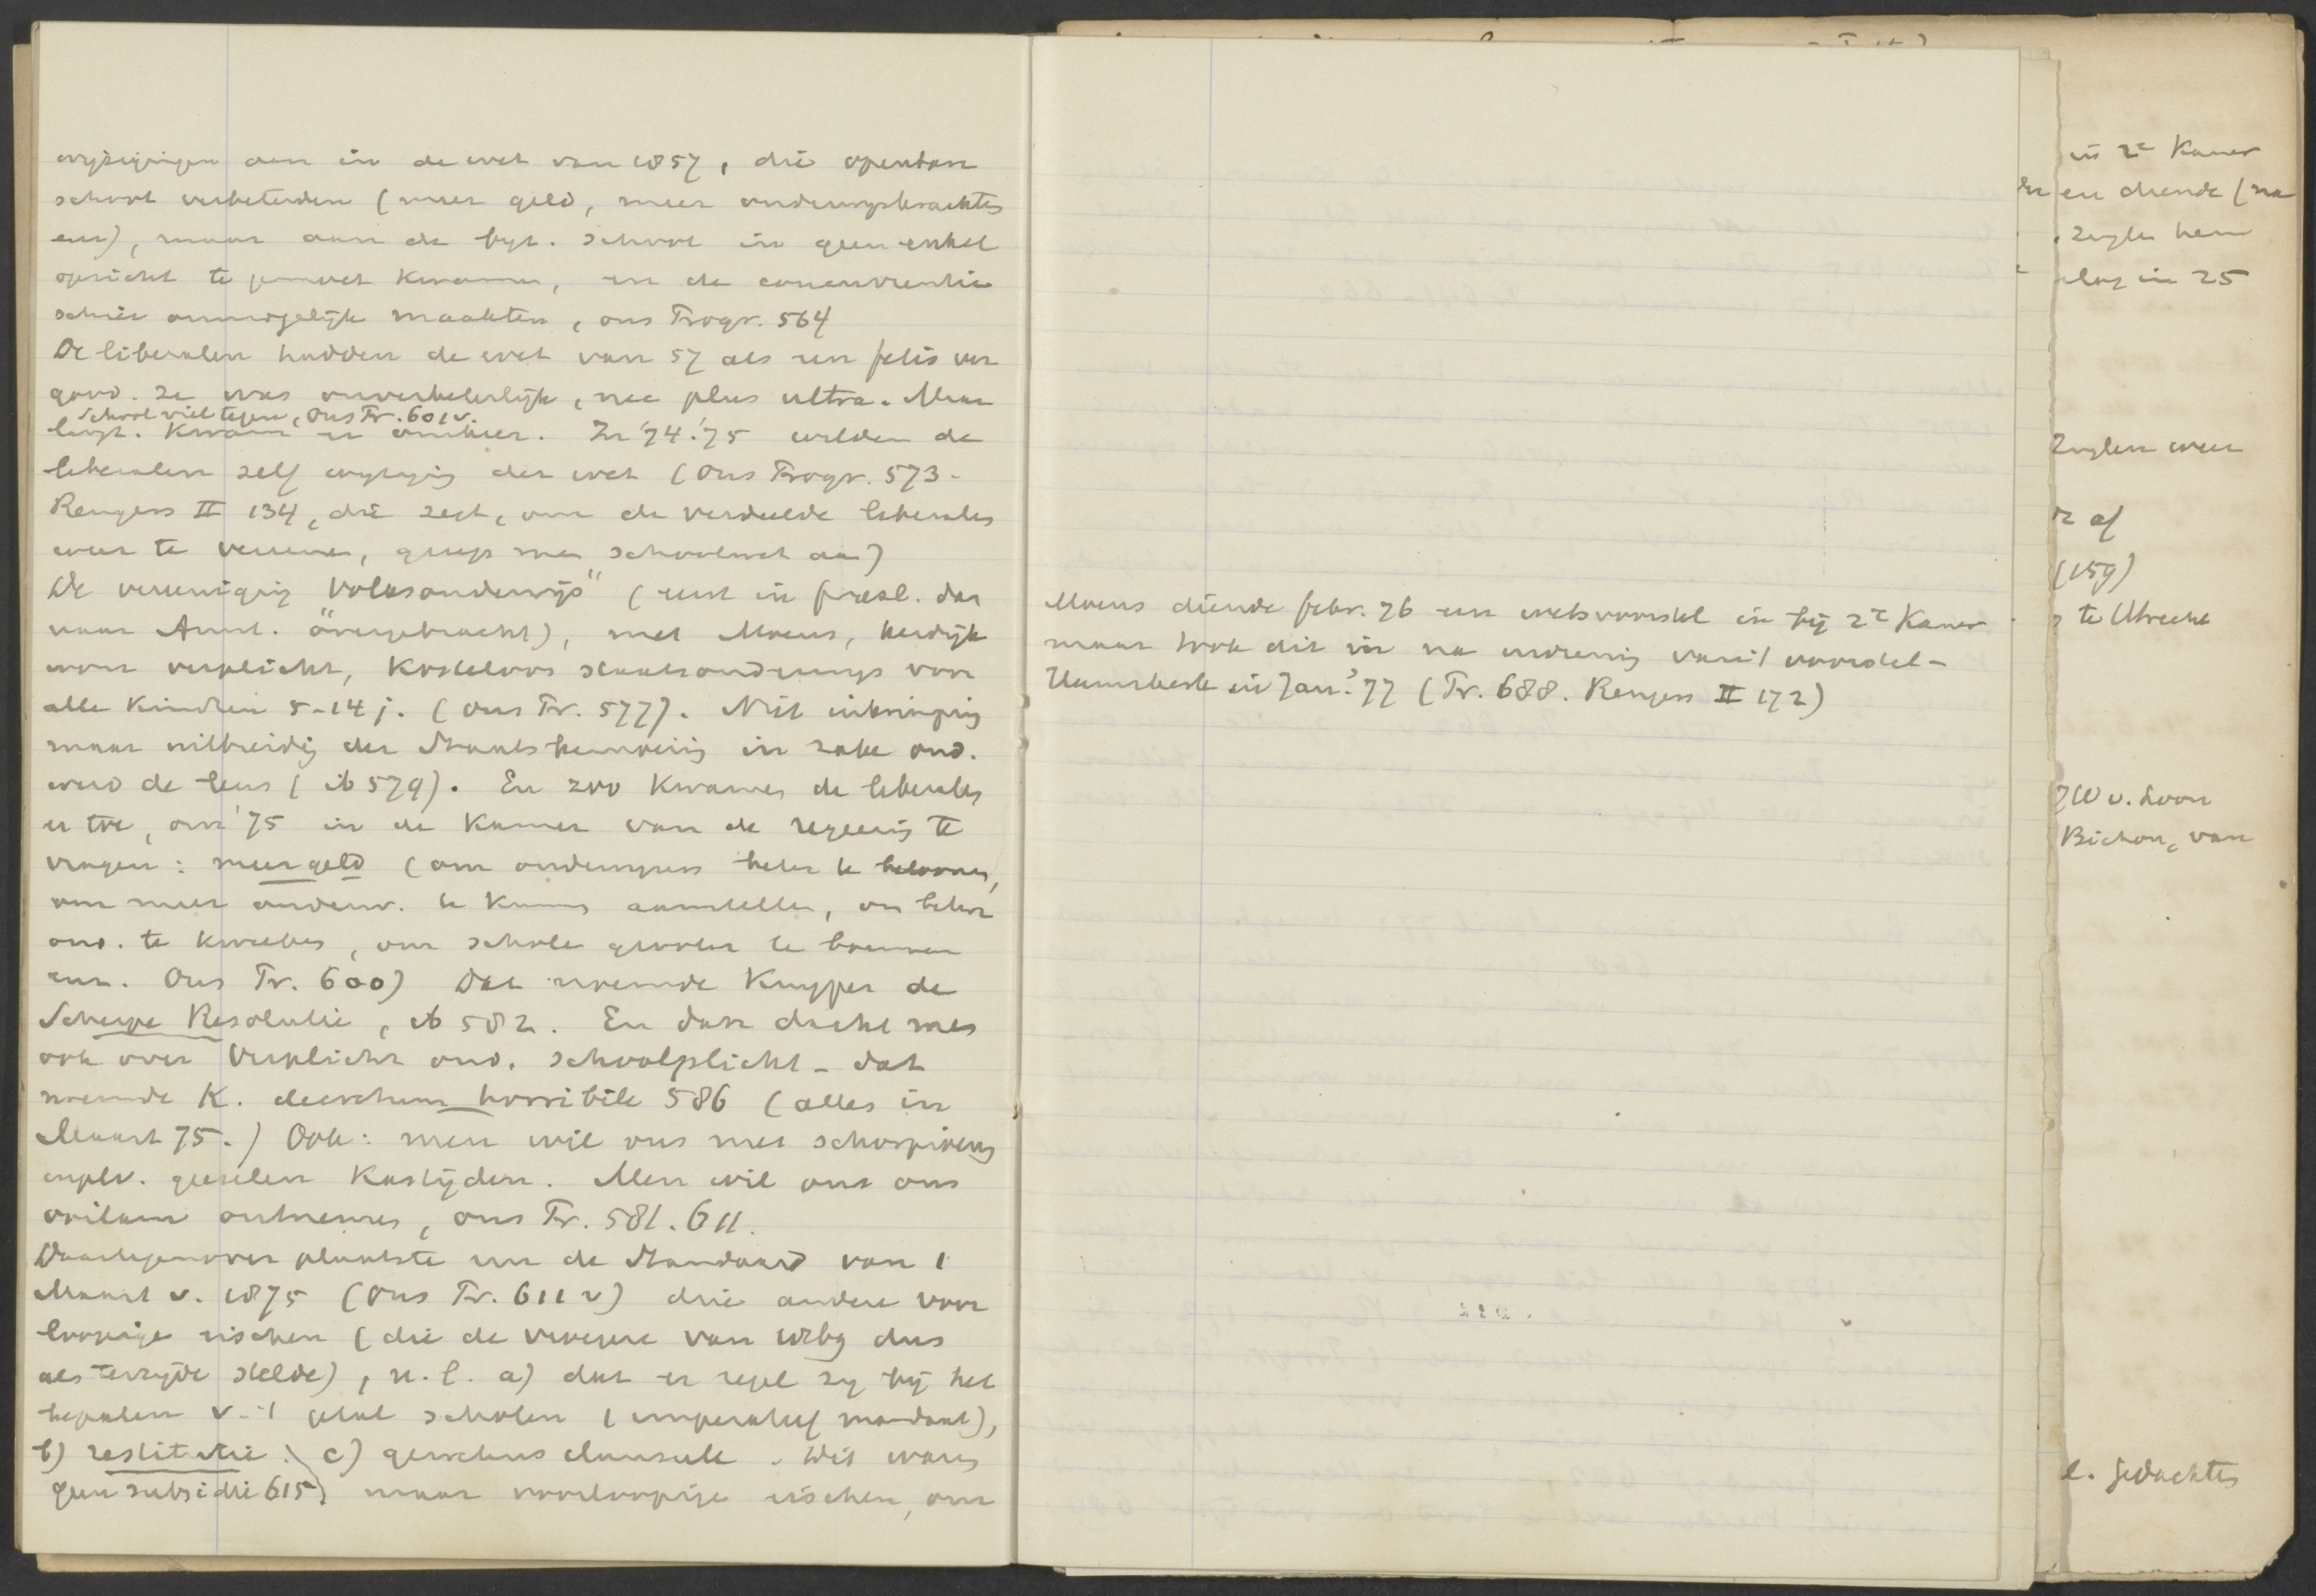 wijzigingen aan in de wet van 1857, die openbare
school verbeterden (meer geld, meer onderwijskrachten
enz), maar aan de byz. school in geen enkel
opzicht te gemoet kwamen, en de concurrentie
schier onmogelijk maakten, ons Progr. 564
De liberalen hadden de wet van 57 als een fetis ver
good. Ze was onverbeterlijk, nec plus ultra. Maar
School viel tegen, Ons Pr. 601 v.
langz. kwam er ombeer. In '74.'75 wilden de
liberalen zelf wijziging der wet (Ons Progr. 573-
Rengers II 134, die zegt, om de verdeelde liberalen
weer te vereenen, greep men schoolwet aan)
De vereeniging "Volksonderwijs" (eerst in prov. dan
naar Amst. overgebracht), met Moens, Kerdijk
wou verplicht, kosteloos staatsonderwijs voor
alle kinderen 5-14 j. (Ons Pr. 577). Niet inkrimping
maar uitbreiding der Staatsbemoeiing in zake ond.
werd de leus (ib 579). En zoo kwamen de liberalen
er toe, om '75 in de Kamer van de regeering te
vragen: meer geld (om onderwijzers beter te beloonen,
om meer onderw. te kunnen aanstellen, om beter
ond. te kweeken, om scholen grooter te bouwen
enz. Ons Pr. 600) Dat noemde Kuyper de
Scherpe Resolutie, ib 582. En dan dacht men
ook over Verplicht ond. schoolplicht - dat
noemde K. decretum horribile 586 (alles in
Maart 75.) Ook: men wil ons met schorpioenen
in plv. geeselen kastijden. Men wil ons ons
ontnemen, ons Pr. 581. 611.
Daartegenover plaatste nu de Standaard van 1
Maart v. 1875 (Ons Pr. 611 v) drie andere voor
loopige eischen (die de vroegere van 1869 dus
als terzijde stelde), n.l. a) dat er regel zij bij het
bepalen v. 't getal scholen (imperatief mandaat),
b) restitutie. c) gewetens clausule. Dit waren
geen subsidie 615) maar voorloopige eischen, om
Moens diende febr. 76 een wetsvoorstel in bij 2e Kamer
maar trok dit in na indiening van 't voorstel-
Heemskerk in Jan. '77 (Pr. 688. Rengers II 172)
in 2e Kamer
en diende (na
hem
in 25
weer
af
(159)
te Utrecht
v. Loon
Bichon, van
l. gedachten